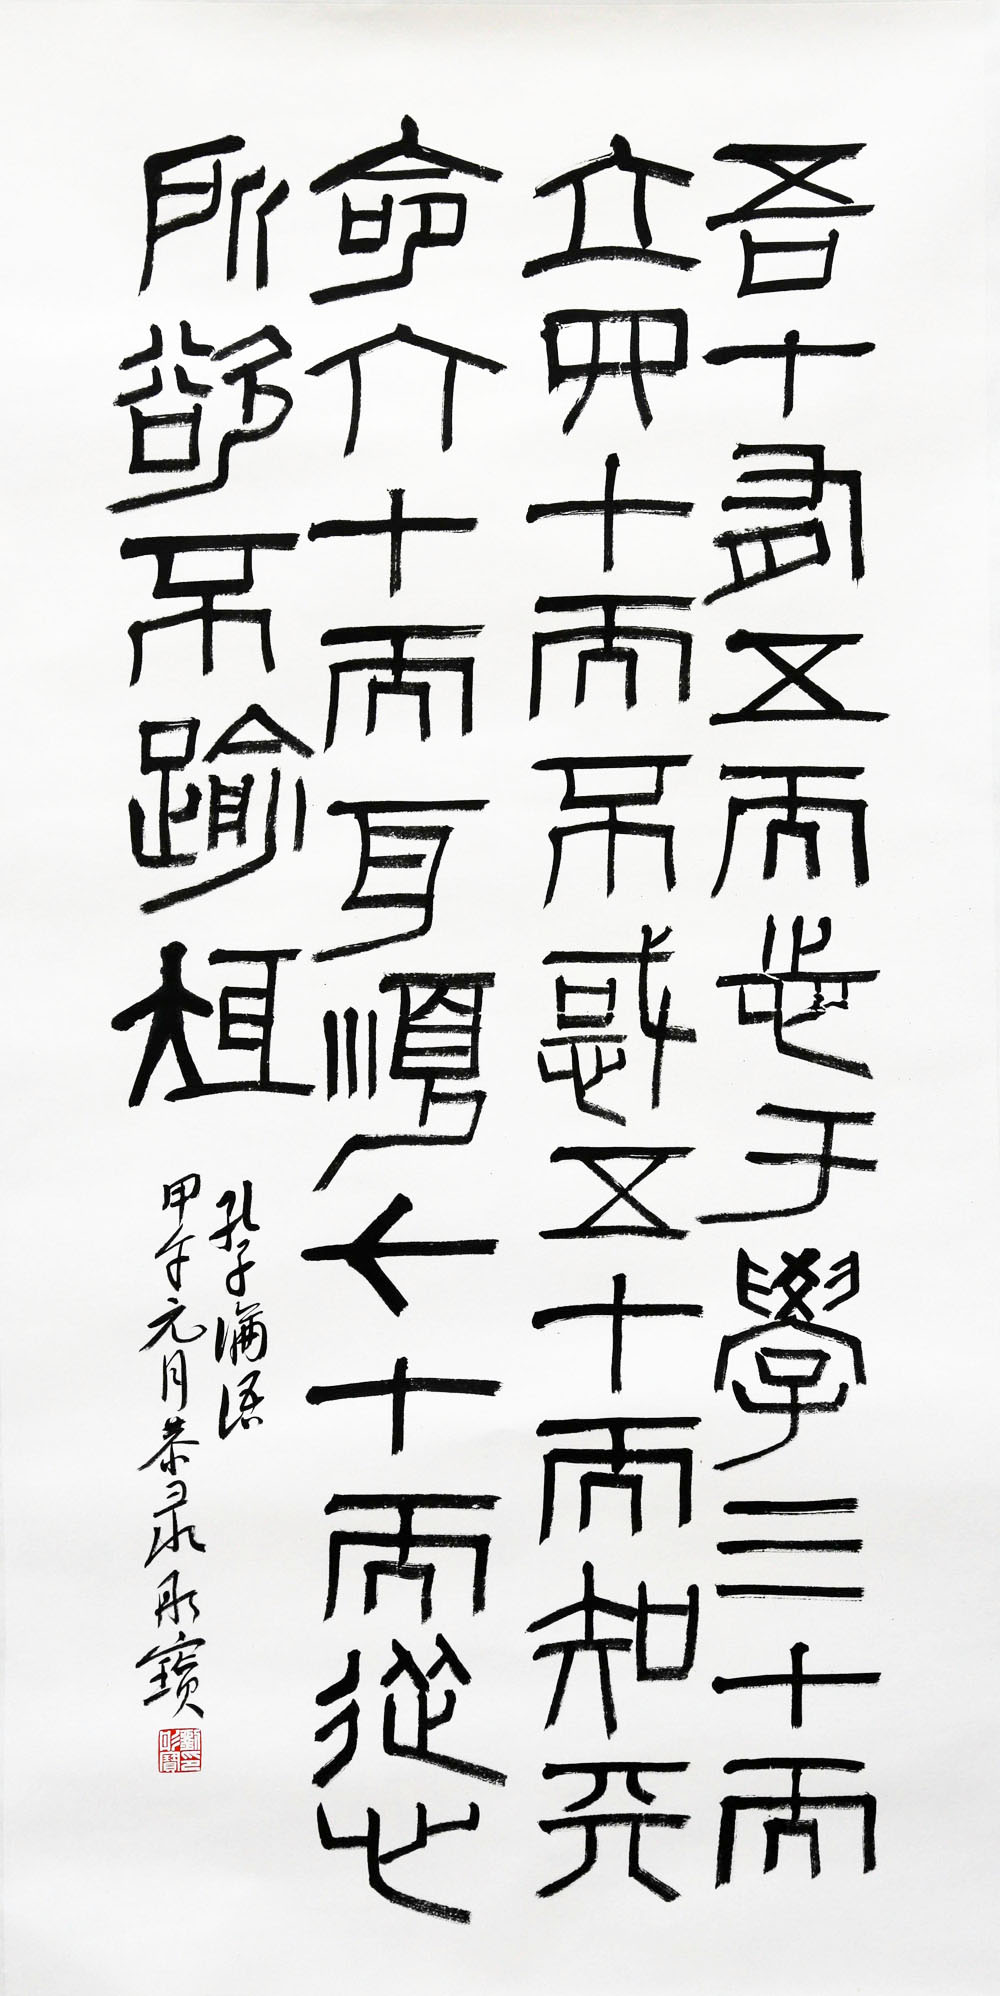 吾十有五而志于學三十而
立四十而不惑五十而知天
命六十而耳順七十而從心
所欲不踰矩
孔子論語
甲午元月恭录彤寶